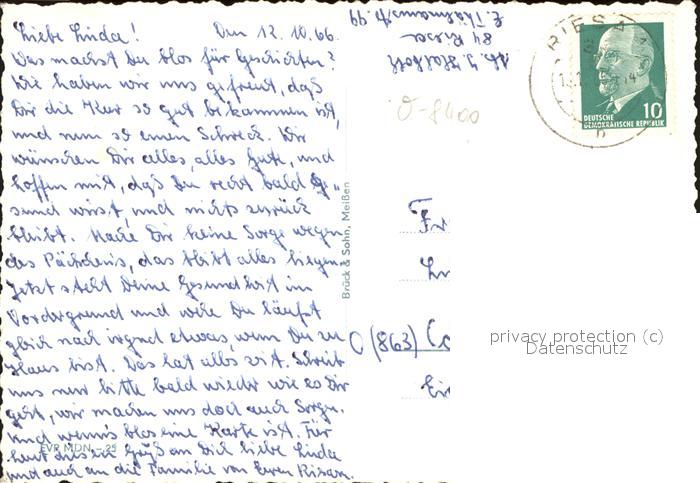 Liebe Linda! Den 12.10.66.
Was machst Du blos für Geschichten?
Wie haben wir uns gefreut, daß
Dir die Kur so gut bekammen ist,
und nun so einen Schreck. Wir
wünschen Dir alles, alles Gute, und
hoffen mit, daß Du recht bald ge„
sund wirst, und nichts zurück
bleibt. Mache Dir keine Sorge wegen
des Päckchens, das bleibt alles liegen.
Jetzt steht Deine Gesundheit im
Vordergrund und wehe Du läufst
gleich nach irgend etwas, wenn Du zu
Haus bist. Das hat alles Zeit. Schreib
uns nur bitte bald wieder wie es Dir
geht, wir machen uns doch auch Sorgen.
und wenn's blos eine Karte ist. Für
heut dies ein Gruß an Dich liebe Linda
und auch an die Familie von Euren Riesaer.
EVP MDN -,25
Brück & Sohn, Meißen
84 Riesa
E. Thälmannstr. 99
O-8400
RIESA
10
DEUTSCHE
DEMOKRATISCHE REPUBLIK
O (863)
privacy protection (c)
Datenschutz